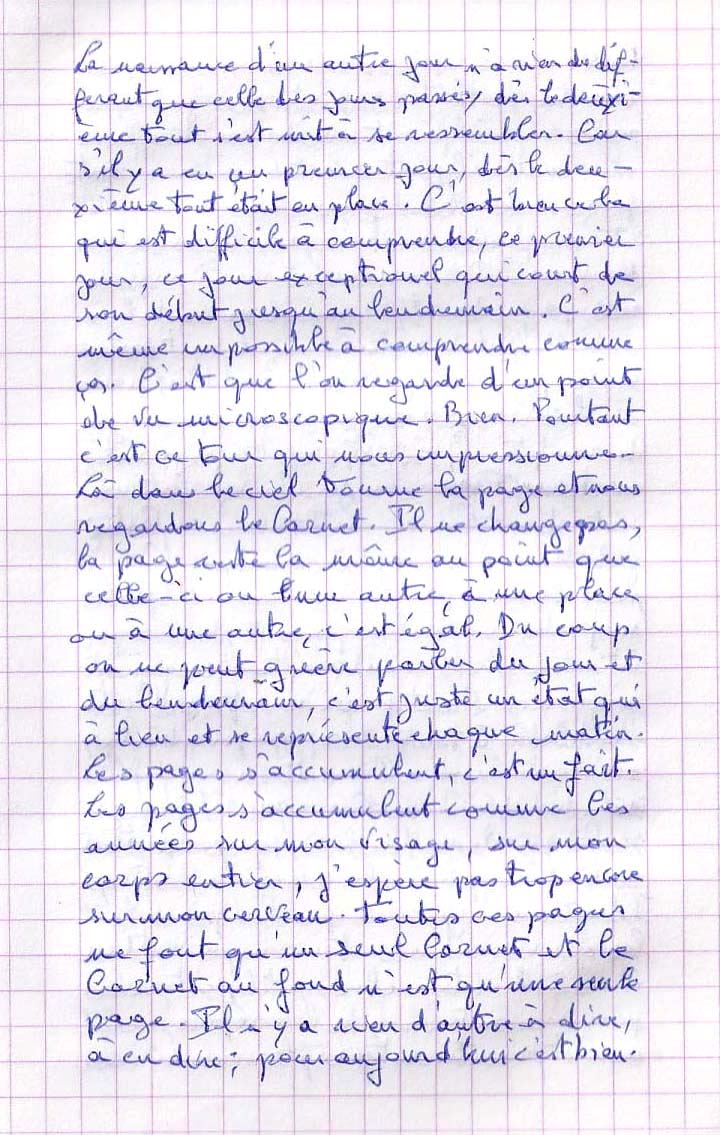 La naissance d'un autre jour n'a rien de dif-
férent que celle des jours passés, dès le deuxi-
ème tout s'est mit à se ressembler. Car
s'il y a eu un premier jour, dès le deu-
xième tout était en place. C'est bien cela
qui est difficile à comprendre, ce premier
jour, ce jour exceptionnel qui court de
son début jusqu'au lendemain. C'est
même impossible à comprendre comme
ça. C'est que l'on regarde d'un point
de vu microscopique. Bien. Pourtant
c'est ce tour qui nous impressionne.
Là dans le ciel tourne la page et nous
regardons le Carnet. Il ne change pas,
la page reste la même au point que
celle-ci ou bien autre, à une place
ou à une autre, c'est égal. Du coup
on ne peut guère parler du jour et
du lendemain, c'est juste un état qui
à lieu et se représente chaque matin.
Les pages s'accumulent, c'est un fait.
Les pages s'accumulent comme les
années sur mon visage, sur mon
corps entier, j'espère pas trop encore
sur mon cerveau. Toutes ces pages
ne font qu'un seul Carnet et le
Carnet au fond n'est qu'une seule
page. Il n'y a rien d'autre à dire,
à en dire ; pour aujourd'hui c'est bien.